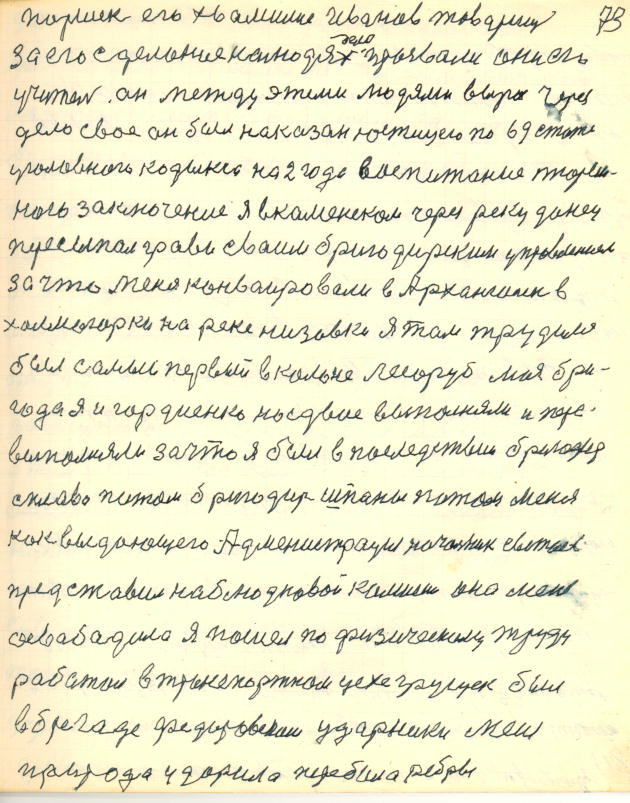 73
его хвамилие Иванов товарищ
за его сделоние на людях дело прозвали он есть
учител. он между этеми людями вырос через
дело свое он был наказан по 69 стат
уголовного кодыкса на 2 года воспитание тюрем-
ного заключение я вкаменском через реку донец
сваим бригодирским управлением
за что меня конваировали в Архангилск в
холмогорки на реке низовки я там трудился
был самый первый вколоне лесоруб моя бри-
года я и гордиенко носдвое выполняли и пере-
выполняли за что я был в последствии бригодир
сплаво потом бригодир шпаны потом меня
как выдающего Адменистрация началник
представил наблюдповой комисии она меня
асвабадила я пошел по физическому труду
работал в транспортном цехе грущик был
в брегаде федоровским ударники меня
природа ударила перебила рёбры